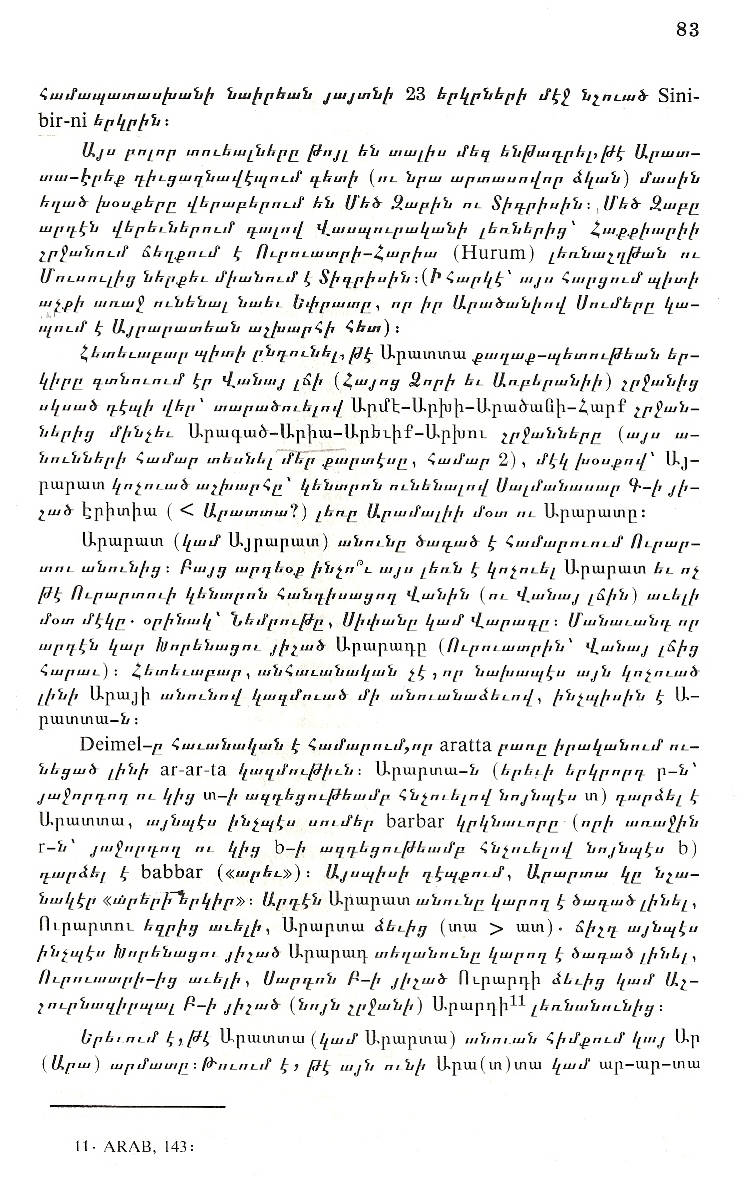 83
Համապատասխանի նաիրեան յայտնի 23 երկրների մէջ նշուած Sini-
bir-ni երկրին։
Այս բոլոր տուեալները թոյլ են տալիս մեզ ենթադրել, թէ Արատ-
տա-էրեք դիւցազնավէպում գետի (ու նրա արտասովոր ձկան) մասին
եղած խօսքերը վերաբերում են Մեծ Զաբին ու Տիգրիսին։ Մեծ Զաբը
արդէն վերեւներում գալով Վասպուրականի լեռներից՝ Հաքքիարիի
շրջանում ճեղքում է Ուրուատրի-Հարիա (Hurum) լեռնաշղթան ու
Մուսուլից ներքեւ միանում է Տիգրիսին։ (Ի հարկէ՝ այս հարցում պիտի
աչքի առաջ ունենալ նաեւ Եփրատը, որ իր Արածանիով Սումերը կա-
պում է Այրարատեան աշխարհի հետ)։
Հետեւաբար պիտի ընդունել, թէ Արատտա քաղաք-պետութեան եր-
կիրը գտնուում էր Վանայ լճի (Հայոց Ձորի եւ Առբերանիի) շրջանից
սկսած դէպի վեր՝ տարածուելով Արմէ-Արխի-Արածանի-Հարք շրջան-
ներից մինչեւ Արագած-Արիա-Արեւիք-Արխու շրջանները (այս ա-
նունների համար տեսնել մեր քարտէսը, համար 2), մէկ խօսքով՝ Այ-
րարատ կոչուած աշխարհը՝ կենտրոն ունենալով Սալմանասար Գ-ի յի-
շած Էրիտիա ( < Արատտա?) լեռը Արամալիի մօտ ու Արարատը։
Արարատ (կամ Այրարատ) անունը ծագած է համարուում Ուրար-
տու անունից։ Բայց արդեօք ինչո՞ւ այս լեռն է կոչուել Արարատ եւ ոչ
թէ Ուրարտուի կենտրոն հանդիսացող Վանին (ու Վանայ լճին) աւելի
մօտ մէկը. օրինակ՝ Նեմրութը, Սիփանը կամ Վարագը։ Մանաւանդ որ
արդէն կար Խորենացու յիշած Արարադը (Ուրուատրին՝ Վանայ լճից
հարաւ)։ Հետեւաբար, անհաւանական չէ, որ նախապէս այն կոչուած
լինի Արայի անունով կազմուած մի անուանաձեւով, ինչպիսին է Ա-
րատտա-ն։
Deimel-ը հաւանական է համարում, որ aratta բառը իրականում ու-
նեցած լինի ar-ar-ta կազմութիւն։ Արարտա-ն (երեւի երկրորդ ր-ն՝
յաջորդող ու կից տ-ի ազդեցութեամբ հնչուելով նոյնպէս տ) դարձել է
Արատտա, այնպէս ինչպէս սումեր barbar կրկնաւորը (որի առաջին
r-ն՝ յաջորդող ու կից b-ի ազդեցութեամբ հնչուելով նոյնպէս b)
դարձել է babbar («արեւ»)։ Այսպիսի դէպքում, Արարտա կը նշա-
նակէր «արերի երկիր»։ Արդէն Արարատ անունը կարող է ծագած լինել,
Ուրարտու եզրից աւելի, Արարտա ձեւից (տա > ատ). ճիշդ այնպէս
ինչպէս Խորենացու յիշած Արարադ տեղանունը կարող է ծագած լինել,
Ուրուատրի-ից աւելի, Սարգոն Բ-ի յիշած Ուրարդի ձեւից կամ Աշ-
շուրնազիրպալ Բ-ի յիշած (նոյն շրջանի) Արարդի11 լեռնանունից։
Երեւում է, թէ Արատտա (կամ Արարտա) անուան հիմքում կայ Ար
(Արա) արմատը։ Թւում է, թէ այն ունի Արա(տ)տա կամ ար-ար-տա
11. ARAB, 143։